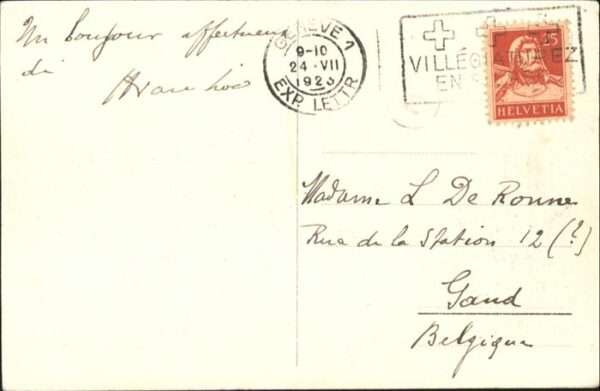 Un bonjour affectueux
de
GENÈVE 1
9-10
24 · VII
1923
EXP. LETTR
VILLÉG
EZ
EN S
HELVETIA
Madame L De Ronne
Rue de la Station 12 (?)
Gand
Belgique